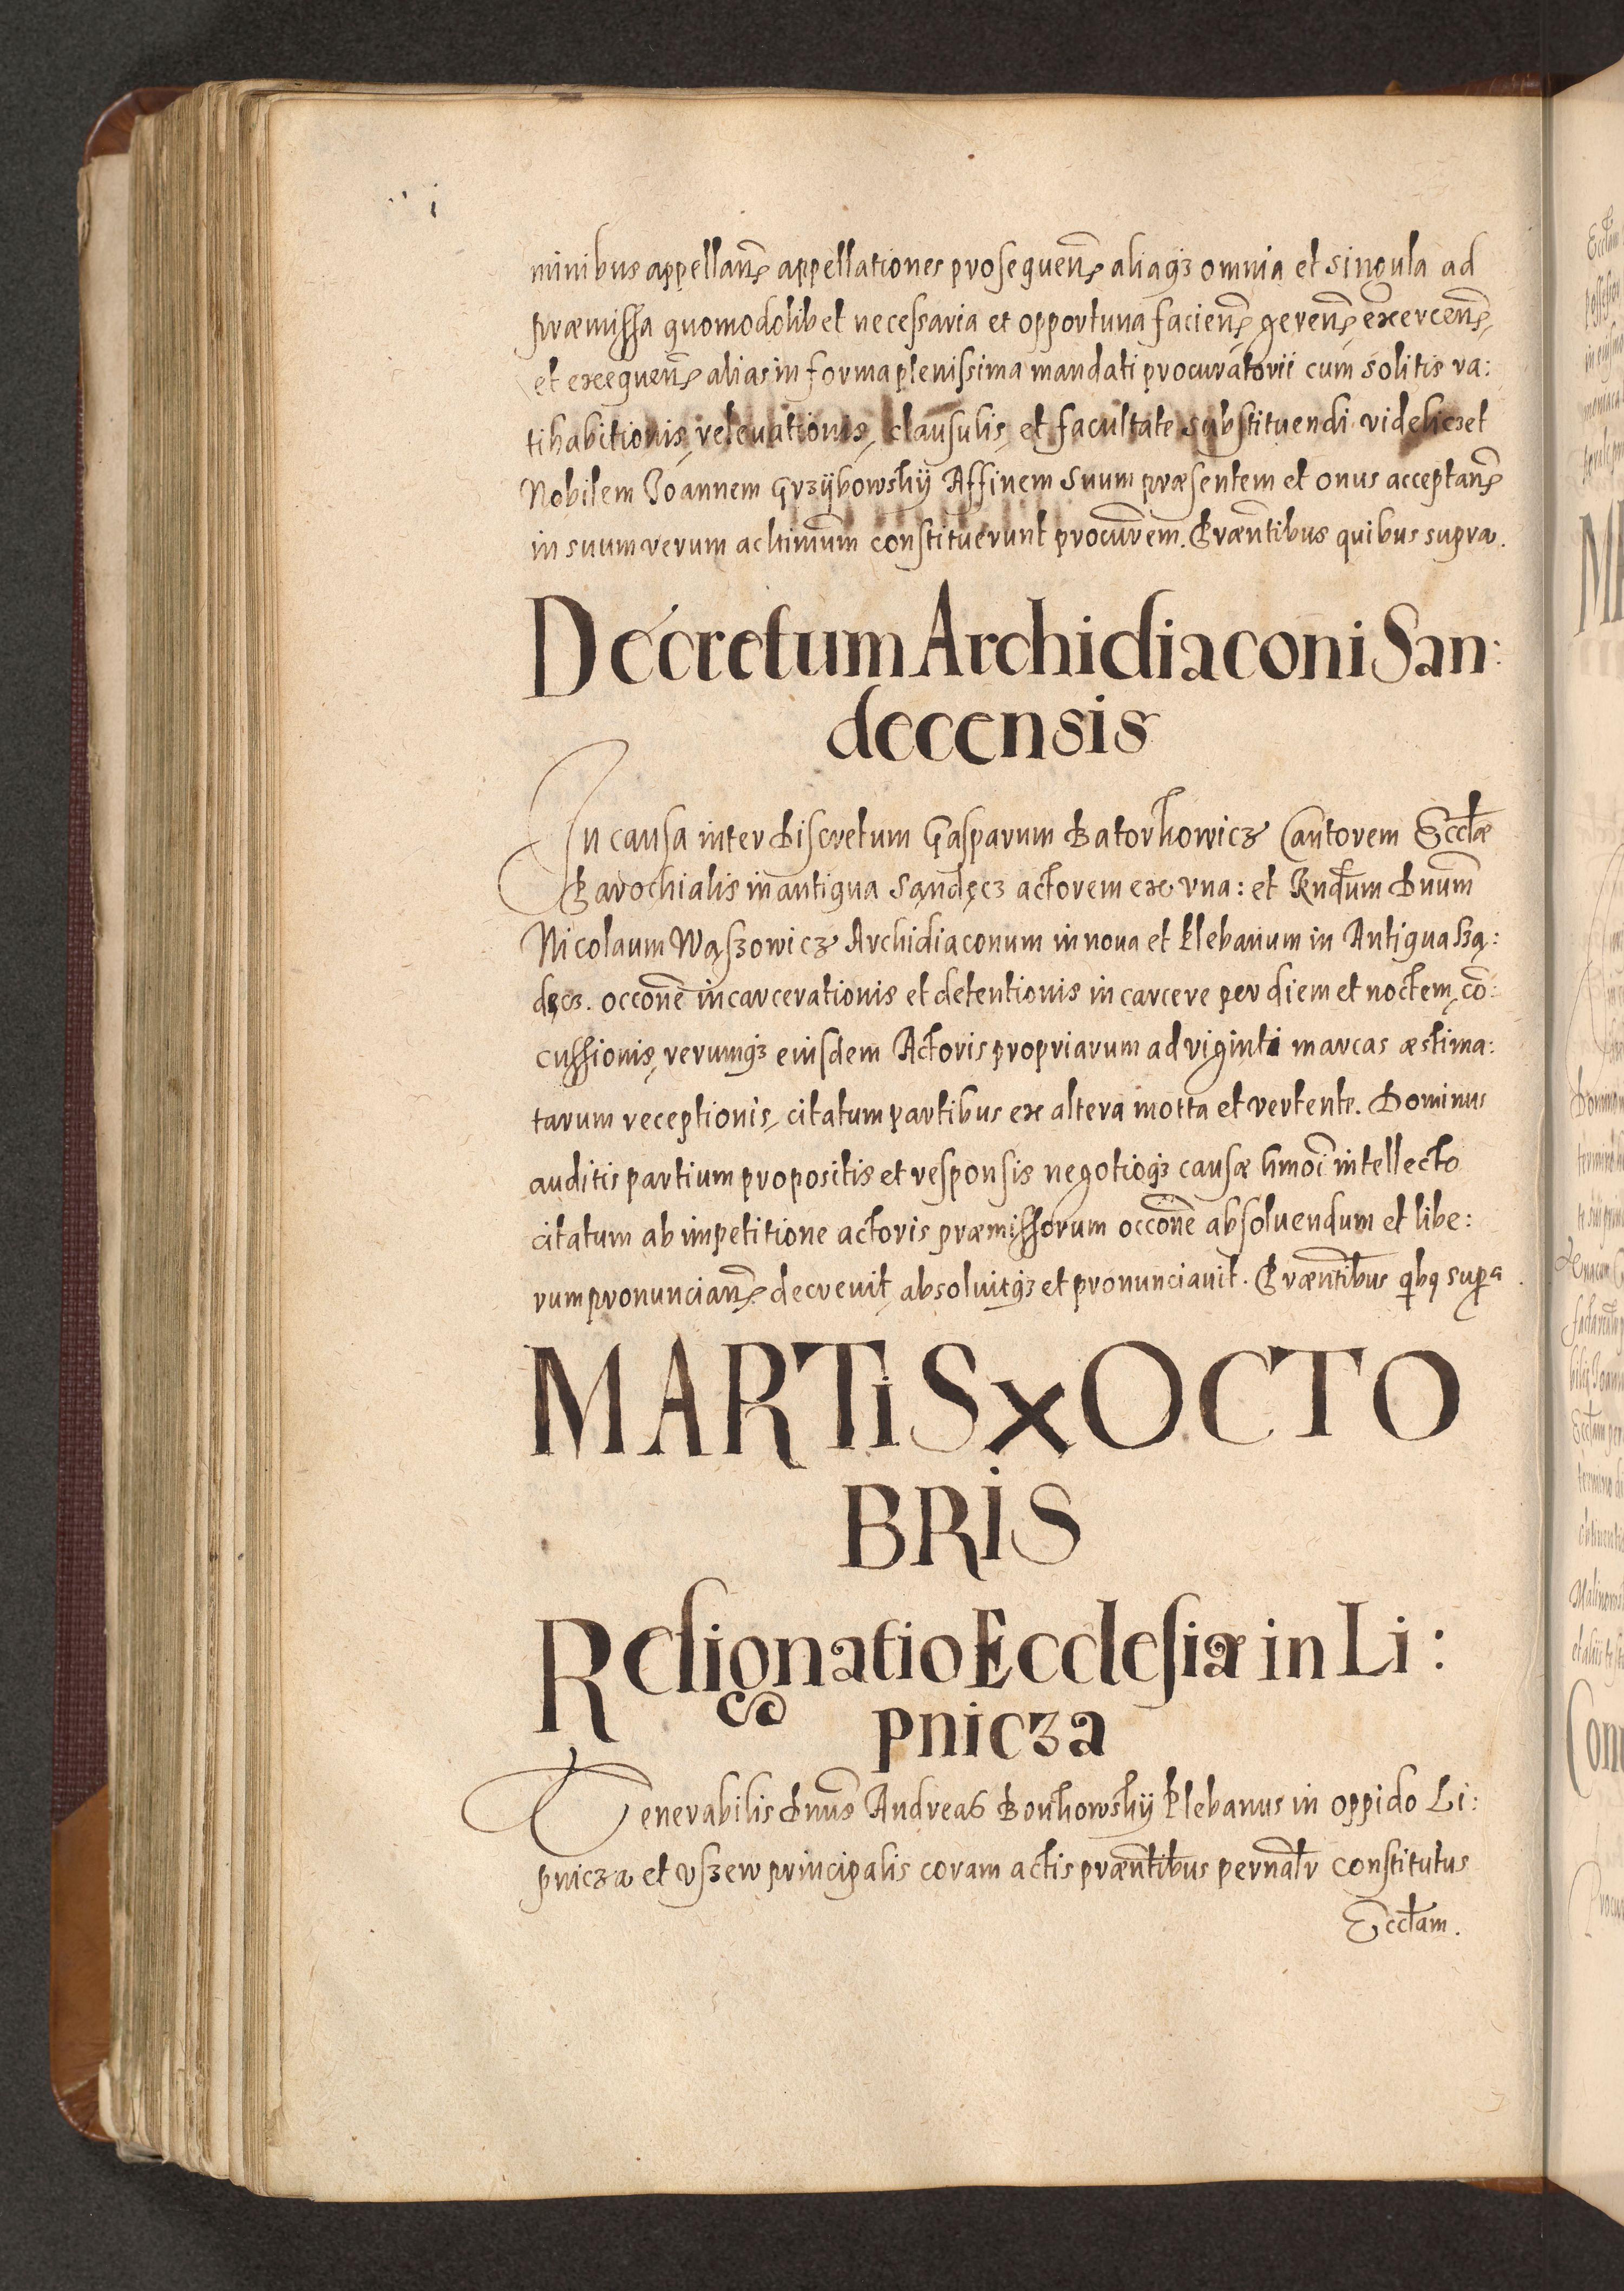 minibus appellan̄ appellationes prosequen̄ aliaqʒ omnia et singula ad
præmissa quomodolibet necessaria et opportuna facien̄ geren̄ exercen̄
et exequen̄ alias in forma plenissima mandati procuratorii cum solitis ra:
tihabitionis, relevationis, clausulis, et facultate substituendi videlicet
Nobilem Joannem Grzÿbowskÿ Affinem suum præsentem et onus acceptan̄
in suum verum ac ltimum̄ constituerunt procurem̄. Præntibus̄ quibus supra.
Decretum Archidiaconi San:
decensis
In causa inter Discretum Gasparum Batorkowicz Cantorem Ecclǣ
Parochialis in antiqua Sandęcz actorem ex vna: et Rndum̄ Dnum̄
Nicolaum Wąszowicz Archidiaconum in noua et Plebanum in Antiqua Szą:
dęcz. occonē incarcerationis et detentionis in carcere per diem et noctem, cō:
cussionis, rerumqʒ eiusdem Actoris propriarum ad viginti marcas æstima:
tarum receptionis, citatum partibus ex altera motta et vertente. Dominus
auditis partium propositis et responsis negotioqʒ causæ hmoī intellecto
citatum ab impetitione actoris præmissorum occonē absoluendum et libe:
rum pronuncian̄ decreuit, absoluitqʒ et pronunciauit. Præntibus̄ qbq supra.
MARTiS X OCTO
BRiS
Resignatio Ecclesiæ in Li:
pnicza
Venerabilis Dnus̄ Andreas Bonkowskÿ Plebanus in oppido Li:
pnicza et vszew principalis coram actis præntibus̄ pernalr̄ constitutus
Ecclam̄.